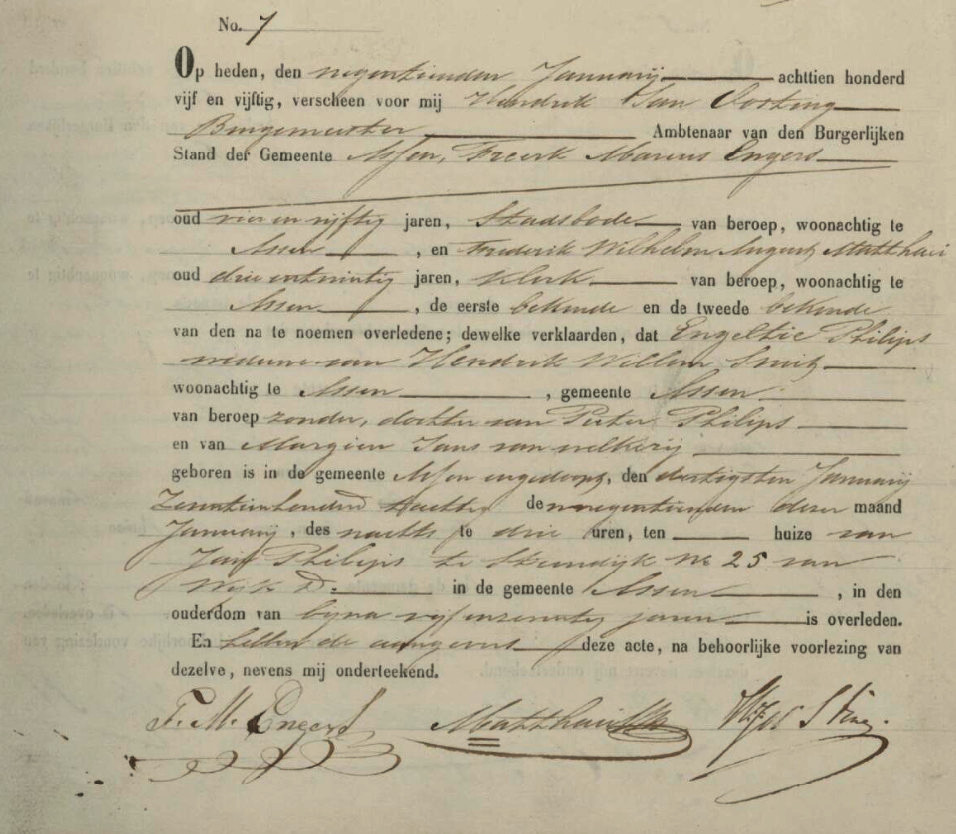 No. 7
Op heden, den negentienden Januarij achttien honderd
vijf en vijftig, verscheen voor mij Hendrik Jan Oosting
Burgemeester Ambtenaar van den Burgerlijken
Stand der Gemeente Assen, Freerk Marcus Engers
oud vier en vijftig jaren, Stadsbode van beroep, woonachtig te
Assen, en Frederik Wilhelm August Matthaei
oud drie en twintig jaren, klerk van beroep, woonachtig te
Assen, de eerste bekende en de tweede bekende
van den na te noemen overledene; dewelke verklaarden, dat Engeltie Philips
weduwe van Hendrik Willem Smit
woonachtig te Assen, gemeente Assen
van beroep zonder, dochter van Pieter Philips
en van Margien Jans van
geboren is in de gemeente Assen, den dertigsten Januarij
den negentienden dezer maand
Januarij, des nachts te drie uren, ten huize van
Philips te No 25 van
Wijk D. in de gemeente Assen, in den
ouderdom van byna vijfenzeventig jaren is overleden.
En hebben de aangevers deze acte, na behoorlijke voorlezing van
dezelve, nevens mij onderteekend.
F. M. Engers Matthaei